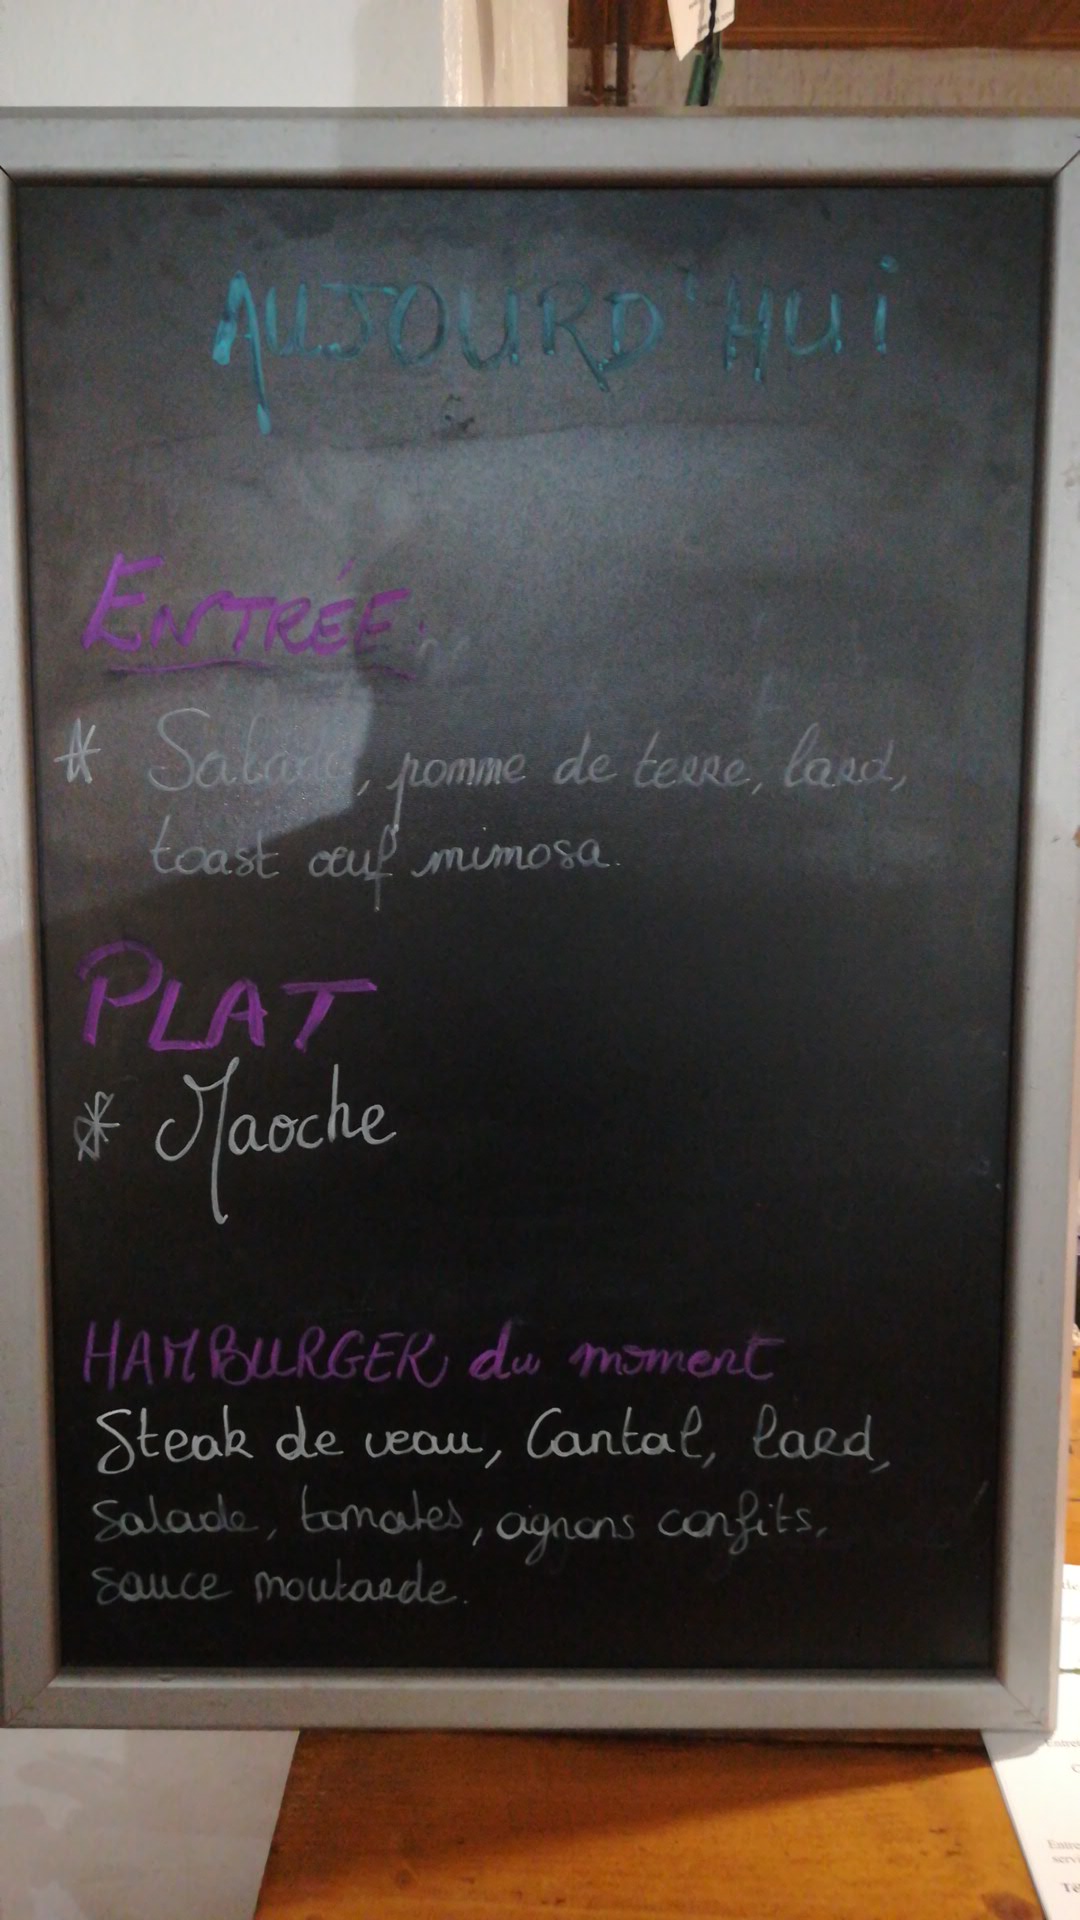 AUJOURD'HUi
ENTRÉE:
* Salade, pomme de terre, lard,
toast œuf mimosa.
PLAT
* Maoche
HAMBURGER du moment
Steak de veau, Cantal, lard,
Salade, tomates, oignons confits,
Sauce moutarde.